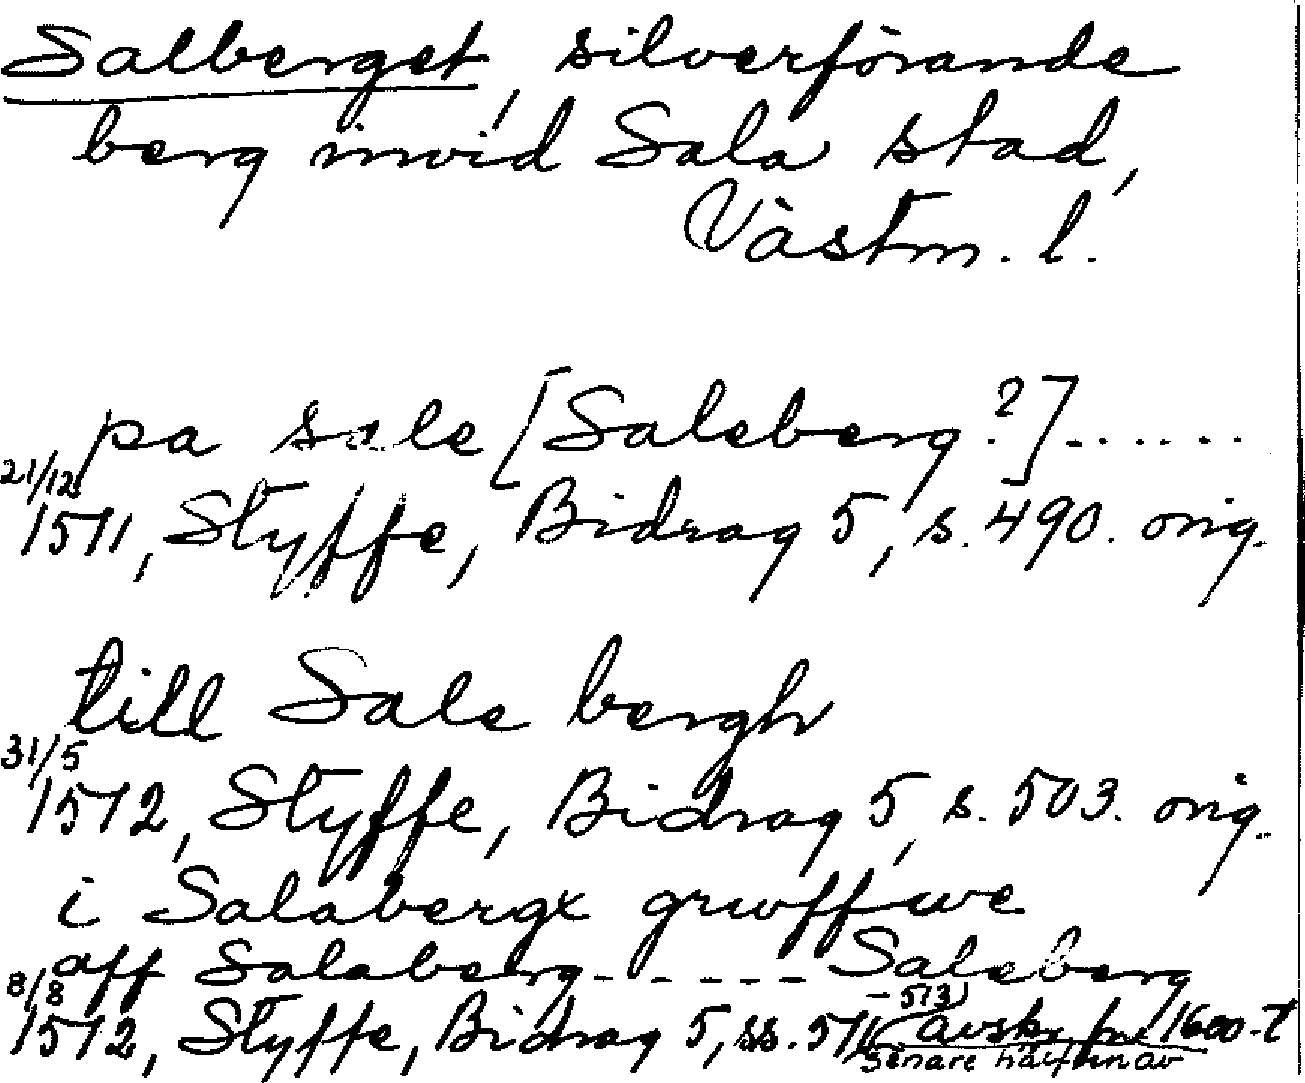 Salberget, silverförande
berg invid Sala stad,
Västm. l.
pa sale [Saleberg?]......
21/12
1511, Styffe, Bidrag 5, s. 490. orig.
till Sale bergh
31/5
1512, Styffe, Bidrag 5, s. 503. orig.
i Salabergx gruoffwe
aff Salaberg------Saleberg
8/8
1512, Styffe, Bidrag 5, ss. 511 - 513 (avskr. fr. 1600-t
senare hälften av